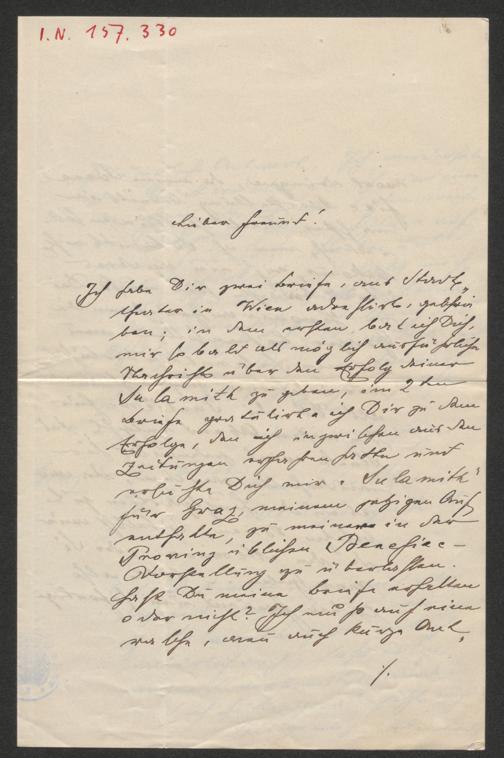 I.N. 157.330
Lieber Freund!
Ich habe Dir zwei Briefe, ans Stadt„
theater in Wien adressirt, geschrie
ben; in dem ersten bat ich Dich,
mir so bald als möglich ausführliche
Nachricht über den Erfolg deiner
Sulamith zu geben, im 2ten
Briefe gratulirte ich Dir zu dem
Erfolge, den ich inzwischen aus den
Zeitungen erfahren hatte und
ersuchte Dich mir „Sulamith"
für Graz, meinem jetzigen Auf„
enthalte, zu meiner in der
Provinz üblichen Benefice-
Vorstellung zu überlassen.
Hast Du meine Briefe erhalten
oder nicht? Ich muß auf eine
rasche, wenn auch kurze Ant„
./.